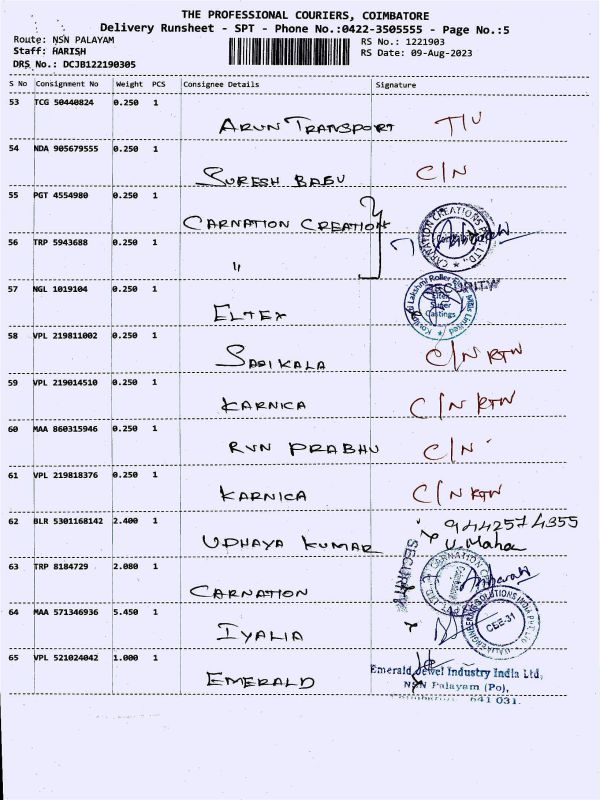 THE PROFESSIONAL COURIERS, COIMBATORE
Delivery Runsheet - SPT - Phone No.:0422-3505555 - Page No.:5
Route: NSN PALAYAM
RS No.: 1221903
Staff: HARISH
RS Date: 09-Aug-2023
DRS No.: DCJB122190305
S No Consignment No Weight PCS Consignee Details Signature
53 TCG 50440824 0.250 1
ARUN TRANSPORT
54 NDA 905679555 0.250 1
SURESH BABU C/N
55 PGT 4554980 0.250 1
CARNATION CREATION
56 TRP 5943688 0.250 1
"
57 NGL 1019104 0.250 1 SECURITY
ELTEX
58 VPL 219811002 0.250 1
SASIKALA C/N RTN
59 VPL 219014510 0.250 1
KARNICA C/N RTN
60 MAA 860315946 0.250 1
RVN PRABHU C/N
61 VPL 219818376 0.250 1
KARNICA C/N RTN
62 BLR 5301168142 2.400 1 9442574355
UDHAYA KUMAR U. Maha
SECURITY
63 TRP 8184729 2.080 1
CARNATION
64 MAA 571346936 5.450 1
IYALIA CEE-31
65 VPL 521024042 1.000 1
EMERALD
Emerald Jewel Industry India Ltd,
NSN Palayam (Po),
641 031.